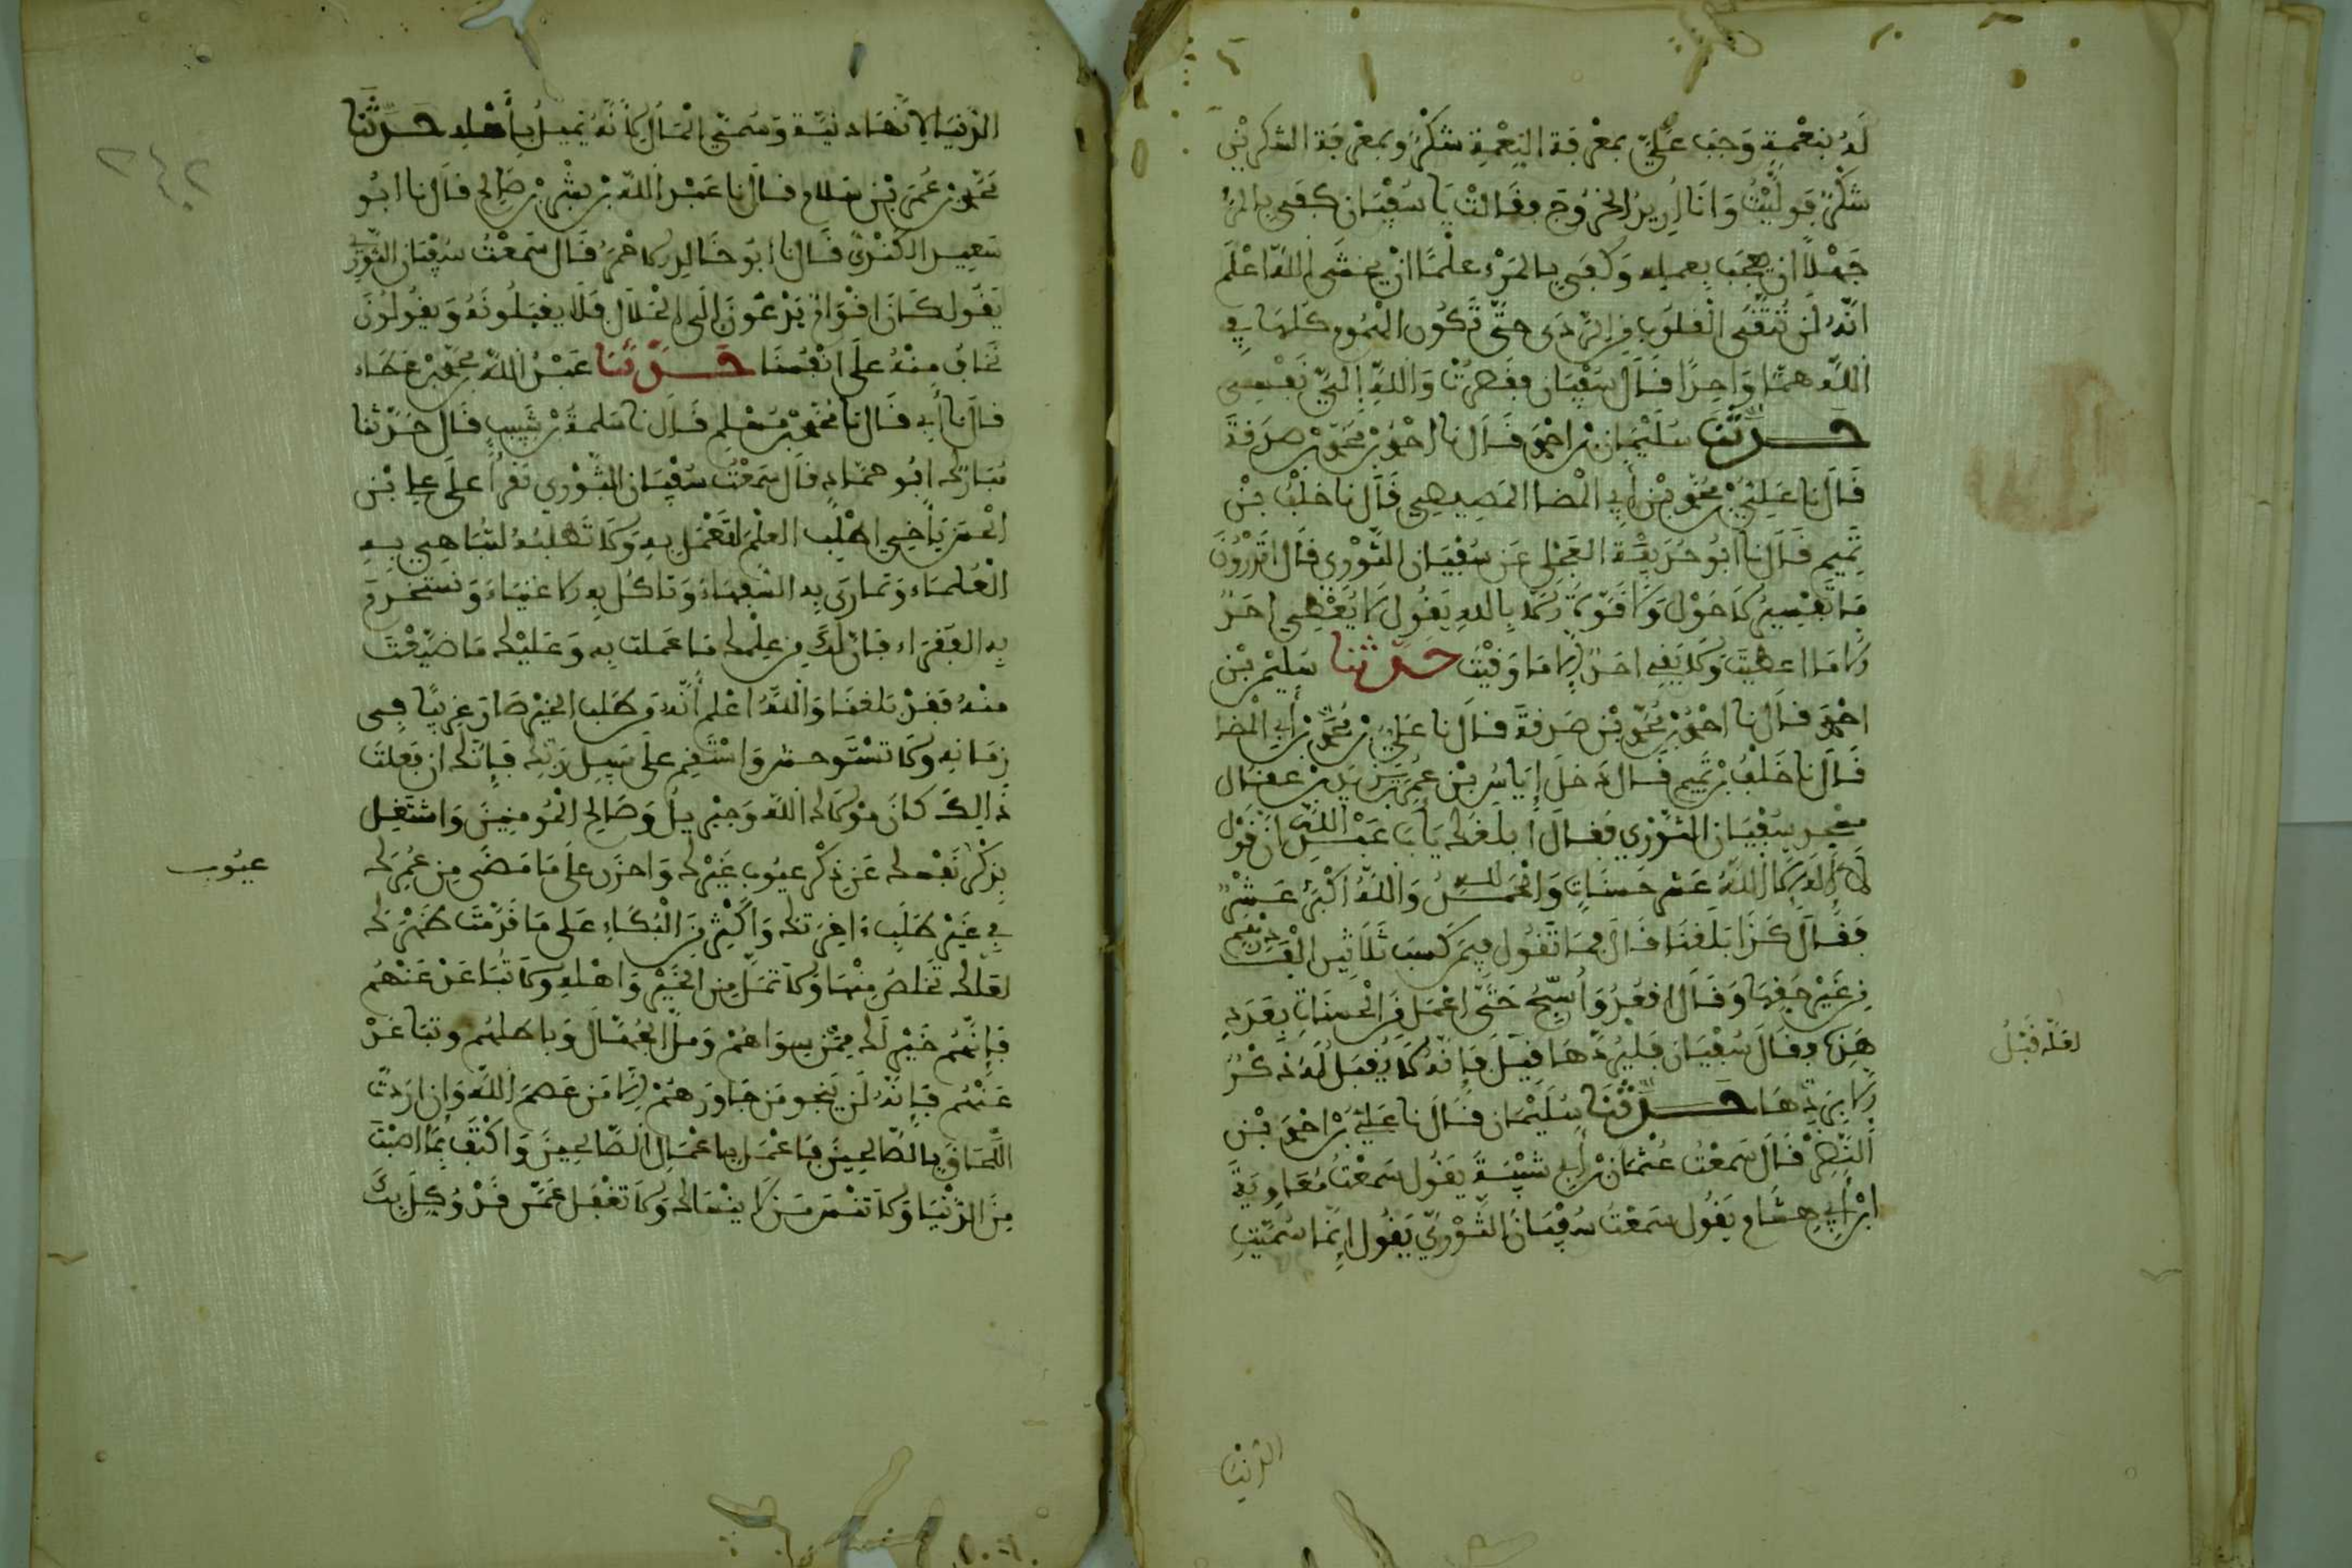 له بنعمة وجب علي بمعرفة النعمة شكر وبمعرفة الشكر بني
شكر فوليت وأنا أريد الخروج فقالت يا سفيان كفى بالمرء
جهلا ان يعجب بعمله وكفى بالمرء علما ان يخشى الله اعلم
انه لن تنقى القلوب من الردى حتى تكون الهموم كلها في
الله هما واحدا قال سفيان فقصرت والله إلي نفسي
حدثنا سليمان بن احمد قال نا احمد بن محمد بن صدقة
قال نا علي بن محمد بن أبي المضا المصيصي قال نا خلف بن
تميم قال نا ابو حذيفة العجلي عن سفيان الثوري قال اتدرون
ما تفسير لا حول ولا قوة الا بالله يقول لا يعطي احد
الا ما اعطيت ولا يقي احد الا ما وقيت حدثنا سليمن بن
احمد قال نا احمد بن محمد بن صدقة قال نا علي بن محمد بن أبي المضا
قال نا خلف بن تميم قال دخل إياس بن عمر بن عقال
سفيان الثوري فقال ابلغك يابا عبد الله ان قول
لا إله إلا الله عشر حسنات والحمد لله والله أكبر عشر
فقال كذا بلغنا قال فما تقول فيمن كسب ثلاثين الف درهم
من غير حقها وقال اقعد واسبح حتى اعمل من الحسنات بعدد
هذه فقال سفيان فليردها قبل فإنه لا يقبل له ذكر
الا بردها حدثنا سليمان قال نا علي بن احمد بن
النضر قال سمعت عثمان بن أبي شيبة يقول سمعت معاوية
ابن أبي هشام يقول سمعت سفيان الثوري يقول إنما سميت
لعله قبل
الدنيا
الدنيا لانها دنية وسمي المال لأنه يميل بأهله حدثنا
محمد بن عمر بن سلام قال نا عبد الله بن بشر بن صالح قال نا ابو
سعيد الكندي قال نا ابو خالد الاحمر قال سمعت سفيان الثوري
يقول كان اقوام يدعون إلى الحلال فلا يقبلونه ويقولون
نخاف منه على انفسنا حدثنا عبد الله بن محمد بن عطاء
قال نا أبي قال نا محمد بن مسلم قال نا سلمة بن شبيب قال حدثنا
مبارك ابو حماد قال سمعت سفيان الثوري يقرأ على علي بن
الحسن يا أخي اطلب العلم لتعمل به ولا تطلبه لتباهي به
العلماء وتمارى به السفهاء وتاكل به الاغنياء وتستخدم
به الفقراء فان لك من علمك ما عملت به وعليك ما ضيعت
منه فقد بلغنا والله اعلم أنه من طلب الخير صار غريبا في
زمانه ولا تستوحش واستقم على سبيل ربك فإنك ان فعلت
ذالك كان مولاك الله وجبريل وصالح المومنين واشتغل
بذكر نفسك عن ذكر عيوب غيرك واحزن على ما مضى من عمرك
في غير طلب ءاخرتك واكثر من البكاء على ما قدمت ظهرك
لعلك تخلص منها ولا تمل من الخير واهله ولا تباعد عنهم
فإنهم خير لك ممن سواهم ومل الجهال وباطلهم وتباعد
عنهم فإنه لن ينجو من جاورهم إلا من عصم الله وان اردت
اللحاق بالصالحين فاعمل باعمال الصالحين واكتف بما اصبت
من الدنيا ولا تنس من لا ينساك ولا تغفل عمن قد وكل بك
عيوب
٢٤٢